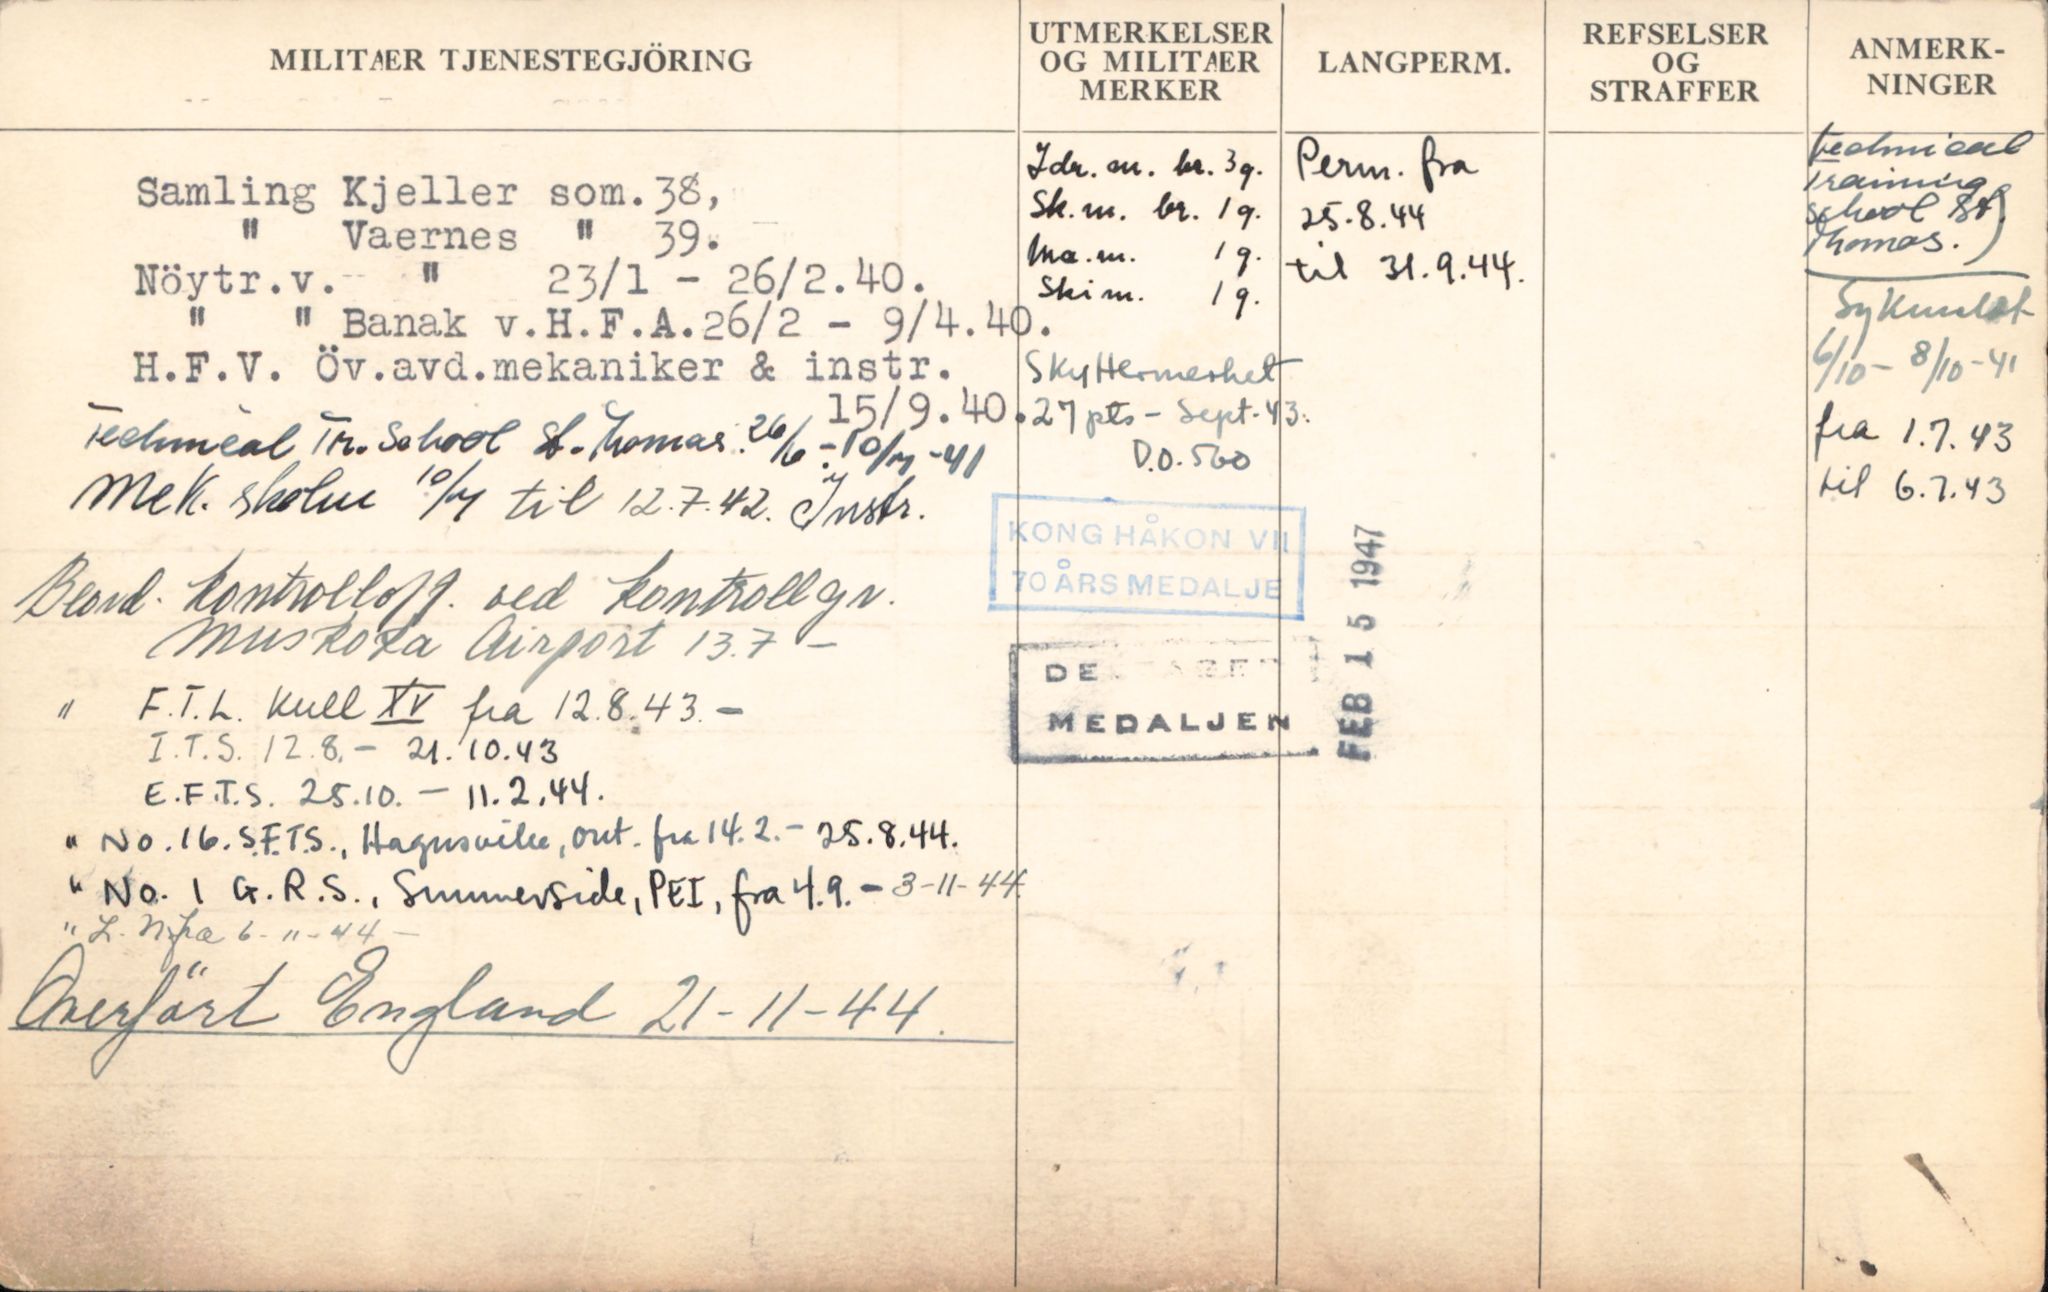 MILITAER TJENESTEGJÖRING
UTMERKELSER
OG MILITAER
MERKER
LANGPERM.
REFSELSER
OG
STRAFFER
ANMERK-
NINGER
Samling Kjeller som.38,
" Vaernes " 39.
Nöytr.v. " 23/1 - 26/2.40.
" " Banak v.H.F.A.26/2 - 9/4.40.
H.F.V. Öv.avd.mekaniker & instr.
15/9.40.
Technical Tr. School St. Thomas. 26/6 - 10/11 -41
Mek. skolen 10/11 til 12.7.42. Instr.
Beord. Kontrolloff. ved Kontrollgr.
Muskoka Airport 13.7 -
" F.T.L. Kull XV fra 12.8.43. -
I.T.S. 12.8. - 21.10.43
E.F.T.S. 25.10. - 11.2.44.
" No. 16. S.F.T.S., Hagersville, Ont. fra 14.2. - 25.8.44.
" No. 1 G.R.S., Summerside, PEI, fra 4.9. - 3-11-44.
" L.N. fra 6-11-44 -
Overfört England 21-11-44.
Idr. m. br. 3g.
Sk.m. br. 1g.
Ma.m. 1g.
Skim. 1g.
Skyttermerket
27 pts - Sept. 43.
D.O. 560
KONG HÅKON VII
70 ÅRS MEDALJE
DELTAGER
MEDALJEN
FEB 15 1947
Perm. fra
25.8.44
til 31.9.44.
Technical
Training
School St
Thomas.)
Sykmeldt
6/10 - 8/10-41
fra 1.7.43
til 6.7.43